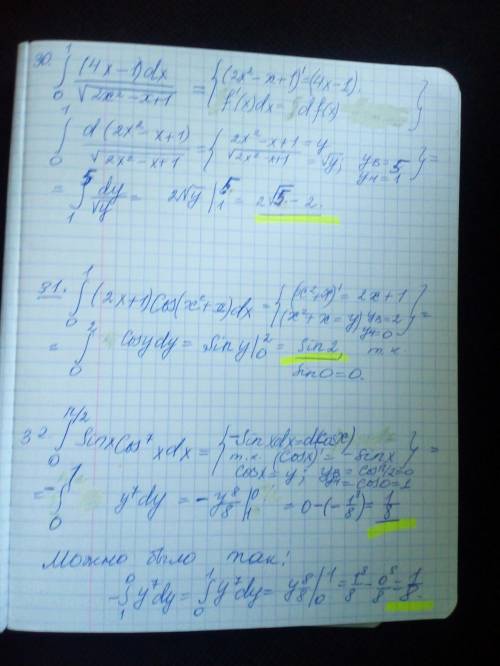 30. ∫₀¹ (4x-1)dx / √(2x²-x+1) = { (2x²-x+1)' = (4x-1).
f'(x)dx = df(x) }
∫₀¹ d(2x²-x+1) / √(2x²-x+1) = { 2x²-x+1 = y
√(2x²-x+1) = √y; yв=5 yн=1 } =
= ∫₁⁵ dy/√y = 2√y |₁⁵ = 2√5 - 2.
31. ∫₀¹ (2x+1)Cos(x²+x)dx = { (x²+x)' = 2x+1
(x²+x=y) yв=2 yн=0 } =
= ∫₀² Cosydy = Siny |₀² = Sin2, т.к
Sin0=0.
32. ∫₀^(π/2) SinxCos⁷xdx = { -Sinxdx=d(Cosx)
т.к. (Cosx)' = -Sinx
Cosx=y; yв=Cosπ/2=0
yн=Cos0=1 } =
= -∫₀¹ y⁷dy = -y⁸/8 |₁⁰ = 0-(-1/8) = 1/8
Можно было так:
-∫₁⁰ y⁷dy = ∫₀¹ y⁷dy = y⁸/8 |₀¹ = 1⁸/8 - 0⁸/8 = 1/8.